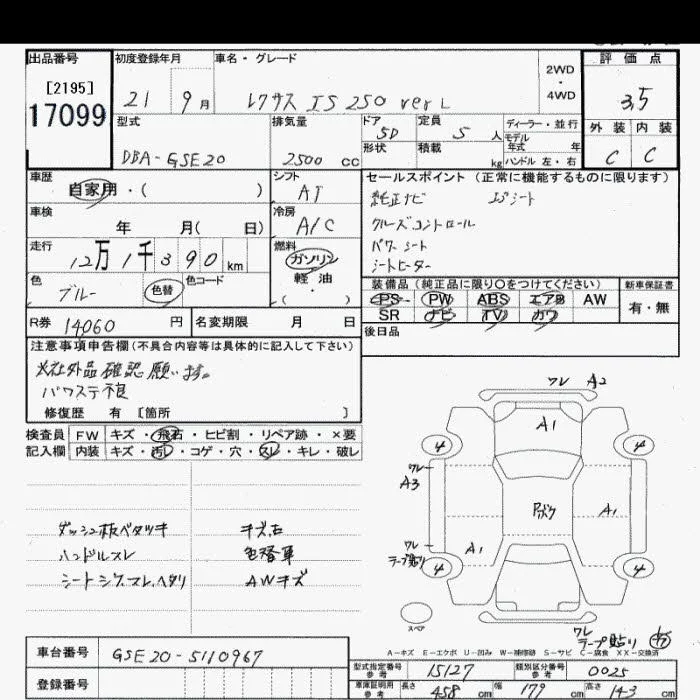 出品番号 初度登録年月 車名・グレード 2WD・4WD 評価点
[2195]
17099 21 9月 レクサス IS 250 ver L 3,5
型式 排気量 ドア 5D 定員 5人 ディーラー・並行 外装 内装
DBA-GSE20 2500 cc 形状 積載 kg モデル年式 年 ハンドル 左・右 C C
車歴 シフト セールスポイント (正常に機能するものに限ります)
自家用・( ) AT 純正ナビ
車検 冷房 クルーズコントロール
年 月( 日) A/C パワーシート
走行 燃料 シートヒーター
12万1千390km ガソリン
色 色コード 軽油 装備品 (純正品に限り○をつけてください) 新車保証書
ブルー 色替 ・( ) PS PW ABS エアB AW 有・無
SR ナビ TV カワ
R券 14060 円 名変期限 月 日 後日品
注意事項申告欄 (不具合内容等は具体的に記入して下さい)
※社外品確認願います。
パワステ不良
修復歴 有 [箇所 ]
検査員 FW キズ・飛石・ヒビ割・リペア跡・×要
記入欄 内装 キズ・汚レ・コゲ・穴・スレ・キレ・破レ
ダッシュ板ベタツキ キズ、凸
ハンドルスレ 色替車
シートシワ、スレ、ヘタリ AWキズ
ワレ A2
A1
4 4
ワレ
A3
Pボク A1
ワレ
ラープ貼り A1
4 4
スペア
ワレ
ラープ貼り
A-キズ E-エクボ U-凹み W-補修跡 S-サビ C-腐食 XX-交換済
車台番号 GSE20-5110967
登録番号
型式指定番号 参考 15127 類別区分番号 参考 0025
車庫証明用 参考 長さ 458 cm 幅 179 cm 高さ 143 cm